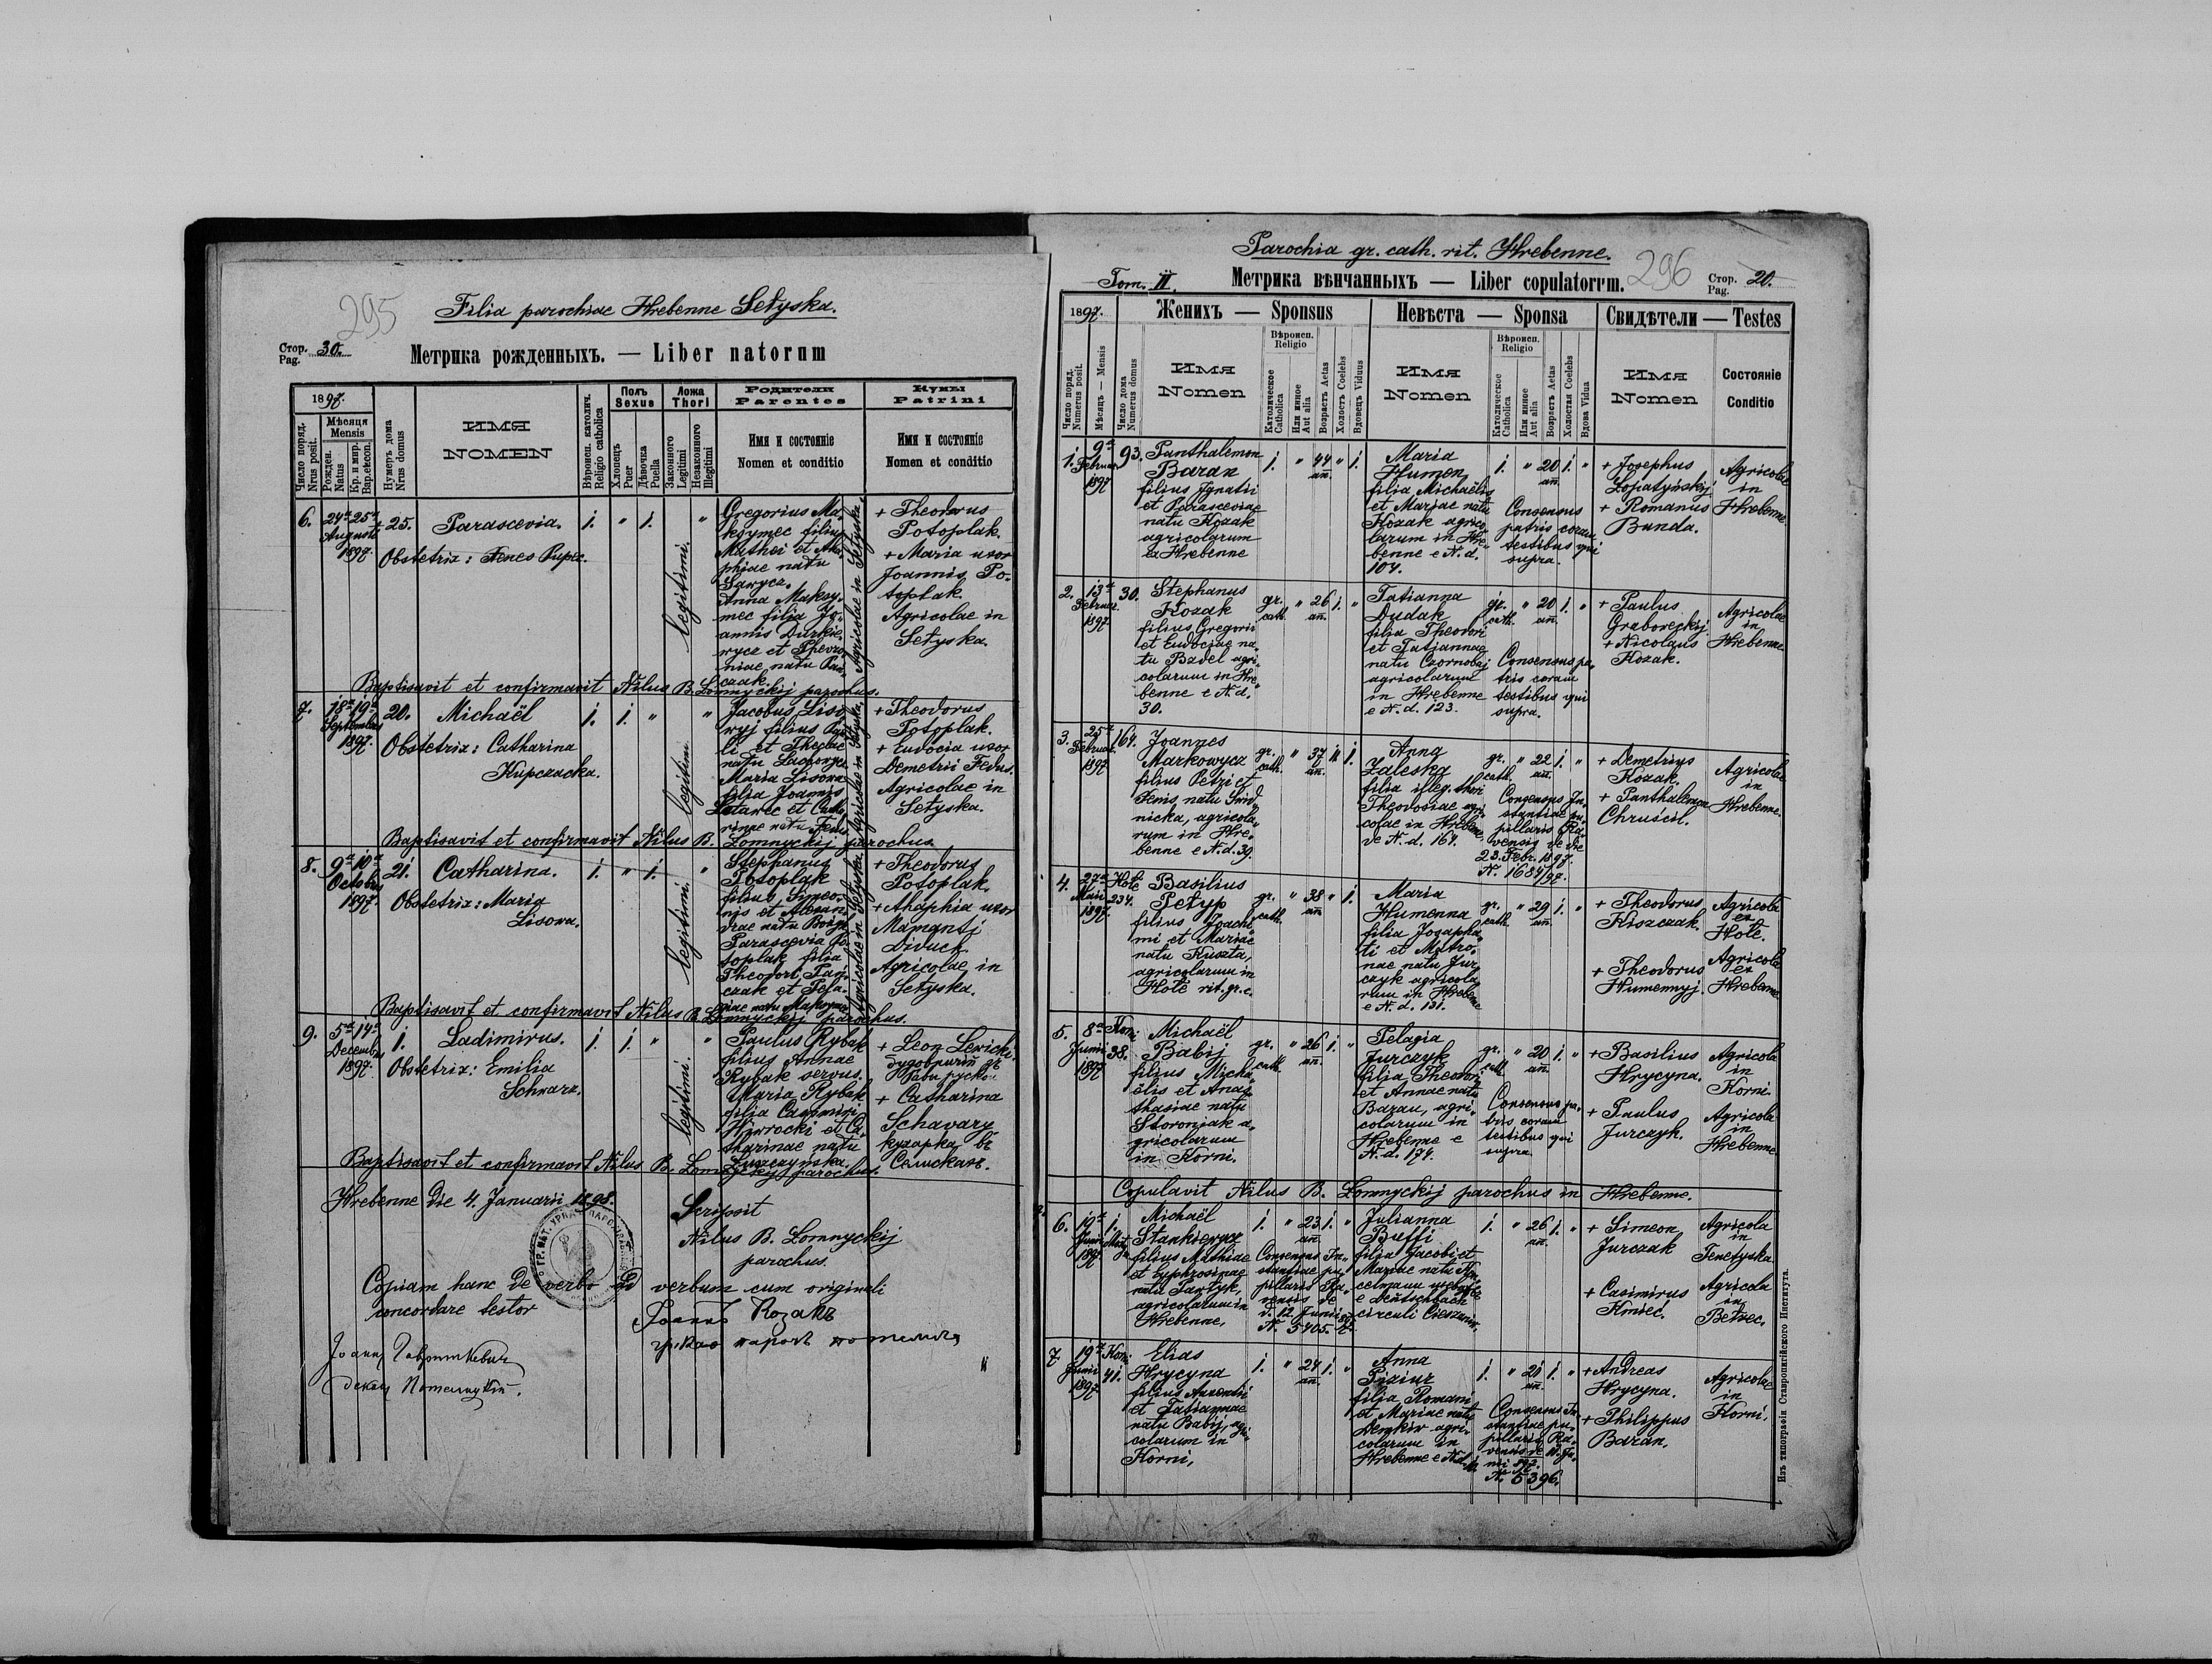 295
Filia parochiae Hrebenne Sełyska.
Стор. Pag. 30.
Метрика рожденныхъ. — Liber natorum
1897.
Число поряд. Nrus posit.
Мѣсяця Mensis
Рожден. Natus
Кр. и мир. Bap. et con.
Нумеръ дома Nrus domus
ИМЯ
NOMEN
Вѣроисп. католич. Religio catholica
Полъ Sexus
Хлопецъ Puer
Дѣвочка Puella
Ложа Thori
Законного Legitimi
Незаконного Illegitimi
Родители Parentes
Имя и состоянiе
Nomen et conditio
Кумы Patrini
Имя и состоянiе
Nomen et conditio
6. 24a 25a Augusti 1897. 25. Parascevia. 1. " 1. legitimi. "
Obstetrix: Fenes Pupec.
Gregorius Ma-
ksymec filius
Mathei et Aha-
phiae natu
Sawycz.
Anna Maksy-
mec filia Jo-
annis Durkie-
wycz et Thevro-
niae natu Pan-
czak.
Agricolae in Sełyska.
+ Theodorus
Potoplak.
+ Maria uxor
Joannis Po-
toplak.
Agricolae in
Sełyska.
Baptisavit et confirmavit Nilus B. Łomnyckij parochus.
7. 18a 19a Septembris 1897. 20. Michaël 1. 1. " legitimi "
Obstetrix: Catharina
Kupczacka.
Jacobus Liso-
wyj filius Pau-
li et Theclae
natu
Maria Lisowa
filia Joannis
et Catha-
rinae natu Fedus.
Agricolae in Sełyska.
+ Theodorus
Potoplak.
+ Eudocia uxor
Demetrii Fedus.
Agricolae in
Sełyska.
Baptisavit et confirmavit Nilus B. Łomnyckij parochus.
8. 9a 10a Octobris 1897. 21. Catharina. 1. " 1. legitimi. "
Obstetrix: Maria
Lisowa.
Stephanus
Potoplak
filius Simeo-
nis et Alexan-
drae natu
Parascevia Po-
toplak filia
Theodori
czak et Tela-
giae natu Maksymec
Agricolae in Sełyska.
+ Theodorus
Potoplak.
+ Ahaphia uxor
Mamanti
Diduch.
Agricolae in
Sełyska.
Baptisavit et confirmavit Nilus B. Łomnyckij parochus.
9. 5a 14a Decembris 1897. 1. Ladimirus. 1. 1. " legitimi. "
Obstetrix: Emilia
Schwarz.
Paulus Rybak
filius Annae
Rybak servus.
Maria Rybak
filia Casimiri
et Ca-
tharinae natu
Łuszczyńska.
+ Leon Lewicki
+ Catharina
Schavary
кухарка въ
Селискахъ.
Baptisavit et confirmavit Nilus B. Łomnyckij parochus.
Hrebenne die 4. Januarii 1898.
Scripsit
Nilus B. Lomnyckij
parochus.
Copiam hanc de verbo ad verbum cum originali
concordare testor
296
Parochia gr. cath. rit. Hrebenne.
Tom. II. Метрика вѣнчанныхъ — Liber copulatorum. Стор. Pag. 20.
1897.
Женихъ — Sponsus
Невѣста — Sponsa
Свидѣтели — Testes
Число поряд. Numerus posit.
Мѣсяцъ — Mensis
Число дома Numerus domus
ИМЯ Nomen
Вѣроисп. Religio
Католическое Catholica
Или иное Aut alia
Возрастъ Aetas
Холостъ Coelebs
Вдовецъ Viduus
ИМЯ Nomen
Вѣроисп. Religio
Католическое Catholica
Или иное Aut alia
Возрастъ Aetas
Холостая Coelebs
Вдова Vidua
ИМЯ Nomen
Состоянiе Conditio
1. 9a Februar. 1897 93. Panthalemon
Baran
filius Ignatii
et Parasceviae
natu Kozak
agricolarum
in Hrebenne
1. " 44 an. " 1.
Maria
Humen
filia Michaëlis
et Mariae natu
Kozak agrico-
larum in Hre-
benne e N. d.
104.
1. " 20 an. 1. "
Consensus
patris coram
testibus qui
supra.
+ Josephus
Łopatyńskij
+ Romanus
Bunda.
Agricolae
in
Hrebenne.
2. 13a Februar. 1897 30. Stephanus
Kozak
filius Gregorii
et Eudociae na-
tu Bazel agri-
colarum in Hre-
benne e N d.
30.
gr. cath. " 26 an. 1. "
Tatianna
Dudak
filia Theodori
et Tatiannae
natu Czornobaj
agricolarum
in Hrebenne
e N. d. 123.
gr. cath. " 20 an. 1. "
Consensus pa-
tris coram
testibus qui
supra.
+ Paulus
Graboreckij
+ Nicolaus
Kozak.
Agricolae
in
Hrebenne
3. 25a Februar. 1897 164. Joannes
Markowycz
filius Petri et
Xenis natu Svid-
nicka, agricola-
rum in Hre-
benne e N. d. 39.
gr. cath. " 37 an. " 1.
Anna
Zaleska
filia illeg. thori
Theodosiae agri-
colae in Hrebenne
de N. d. 164.
gr. cath. " 22 an. 1. "
Consensus In-
stantiae pu-
pillaris Ra-
vensis de die
23. Febr. 1897.
N. 1684/97.
+ Demetrius
Kozak.
+ Panthalemon
Chruścil.
Agricolae
in
Hrebenne.
4. 27a Maii 1897. Hołe 234. Basilius
Petyp
filius Joachi-
mi et Mariae
natu Kuszta,
agricolarum in
Hołe rit. gr. c.
gr. cath. " 38 an. " 1.
Maria
Humenna
filia Josapha-
ti et Matro-
nae natu Jur-
czyk agricola-
rum in Hrebenne
e N. d. 131.
gr. cath. " 29 an. 1. "
+ Theodorus
Kiszczak.
+ Theodorus
Humennyj.
Agricola
ex
Hołe.
Agricola
ex
Hrebenne
5. 8a Junii 1897 Korni 38. Michaël
Babij
filius Micha-
ëlis et Anas-
thasiae natu
Storoniak a-
gricolarum
in Korni.
gr. cath. " 26 an. 1. "
Pelagia
Jurczyk
filia Theodori
et Annae natu
Baran, agri-
colarum in
Hrebenne e
N. d. 174.
gr. cath. " 20 an. 1. "
Consensus pa-
tris coram
testibus qui
supra.
+ Basilius
Hrycyna.
+ Paulus
Jurczyk.
Agricola
in
Korni.
Agricola
in
Hrebenne
Copulavit Nilus B. Łomnyckij parochus in Hrebenne.
6. 19a Junii 1897 Michaël
Stankiewycz
filius Mathiae
et Euphrosinae
natu Pańtyk,
agricolarum in
Hrebenne.
1. " 23 an. 1. "
Consensus In-
stantiae pu-
pillaris Ra-
vensis de
d. 12. Junii 897.
N. 5405.
Julianna
Buffi
filia Jacobi et
Mariae natu
e Deutschbach
circuli Cieszanów.
1. " 26 an. 1. "
+ Simeon
Jurczak
+ Casimirus
Kmieć.
Agricola
in
Tenetyska
Agricola
in
Bełzec.
7. 19a Junii 1897. Korni 41. Elias
Hrycyna
filius Auxentii
et Tatiannae
natu Babij, agri-
colarum in
Korni.
1. " 24 an. 1. "
Anna
Piziur
filia Romani
et Mariae natu
Demkiw agri-
colarum in
Hrebenne e N. d.
1. " 21 an. 1. "
Consensus In-
stantiae pu-
pillaris Ra-
vensis de 11. Ju-
nii 897.
N. 5396.
+ Andreas
Hrycyna.
+ Philippus
Baran.
Agricolae
in
Korni.
Изъ типографiи Ставропигiйского Института.